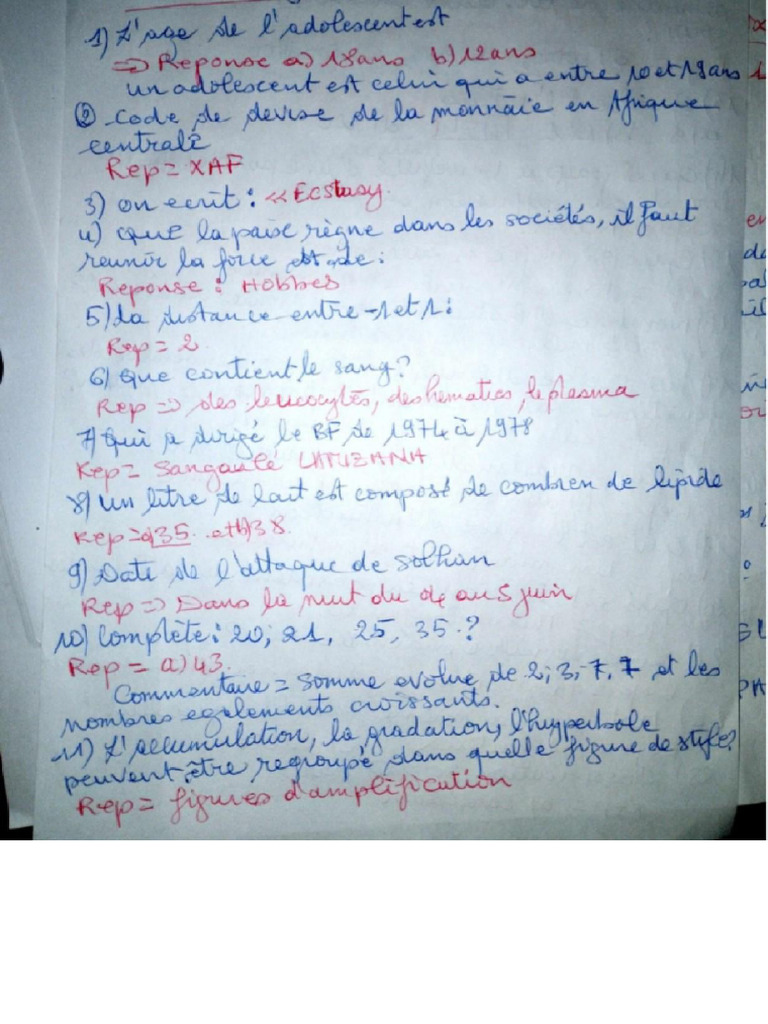 1) L'age de l'adolescent est
=> Reponse a) 18ans b) 12ans
un adolescent est celui qui a entre 10 et 19 ans
② Code de devise de la monnaie en Afrique
centrale
Rep = XAF
3) on ecrit : << Ecstasy.
4) Que la paise règne dans les sociétés, il faut
reunir la force et de :
Reponse : Hobbes
5) La distance entre -1 et 1 :
Rep = 2
6) Que contient le sang?
Rep => des leucocytes, des hematies, le plasma
7) Qui a dirigé le BF de 1974 à 1978
Rep = Sangoulé LAMIZANA
8) Un litre de lait est composé de combien de lipide
Rep = a) 35 et b) 38.
9) Date de l'attaque de Solhan
Rep => Dans la nuit du 04 au 5 juin
10) Complète : 20, 21, 25, 35 ?
Rep = a) 43.
Commentaire = Somme evolue de 2, 3, 7, 7 et les
nombres egalements croissants.
11) L'accumulation, la gradation, l'hyperbole
peuvent être regroupé dans quelle figure de style?
Rep = figures d'amplification